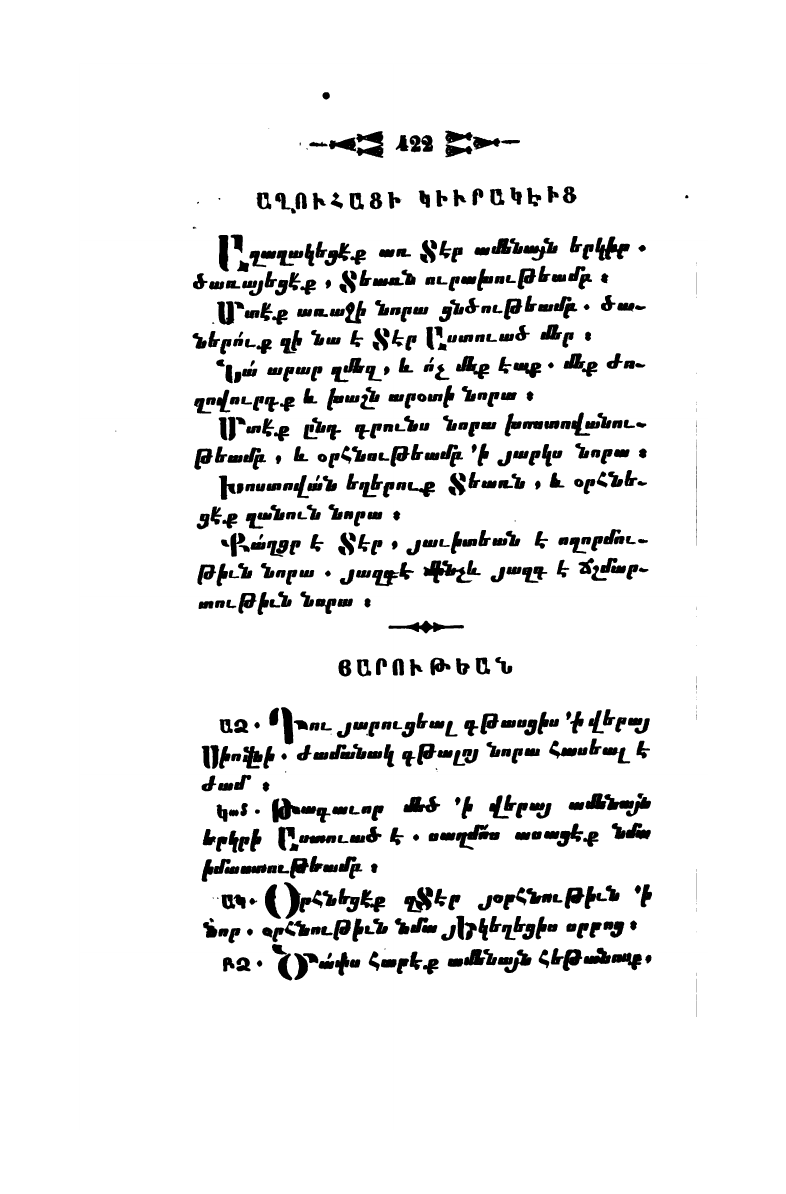 422
ԱՂՈՒՀԱՑԻ ԿԻՒՐԱԿԷԻՑ
Աղաղակեցէք առ Տէր ամենայն երկիր ․
ծառայեցէք , Տեառն ուրախութեամբ ։
Մտէք առաջի նորա ցնծութեամբ ․ ծա֊
ներո՛ւք զի նա է Տէր Աստուած մեր ։
Նա՛ արար զմեզ , և ո՛չ մեք էաք ․ մեք ժո֊
ղովուրդք և խաշն արօտի նորա ։
Մտէք ընդ դրունս նորա խոստովանու֊
թեամբ , և օրհնութեամբ ՚ի յարկս նորա ։
Խոստովա՛ն եղերուք Տեառն , և օրհնե֊
ցէք զանուն նորա ։
Քա՛ղցր է Տէր , յաւիտեան է ողորմու֊
թիւն նորա ․ յազգէ մինչև յազգ է ճշմար֊
տութիւն նորա ։
ՅԱՐՈՒԹԵԱՆ
ԱՁ ․ Դու յարուցեալ գթասցիս ՚ի վերայ
Սիովնի ․ ժամանակ գթալոյ նորա հասեալ է
ժամ ։
Կամ ․ Թագաւոր մեծ ՚ի վերայ ամենայն
երկրի Աստուած է ․ սաղմոս ասացէք նմա
իմաստութեամբ ։
ԱԿ ․ Օրհնեցէք զՏէր յօրհնութիւն ՚ի
նոր ․ օրհնութիւն նմա յԵկեղեցիս սրբոց ։
ԲՁ ․ Ծափս հարէք ամենայն հեթանոսք ,